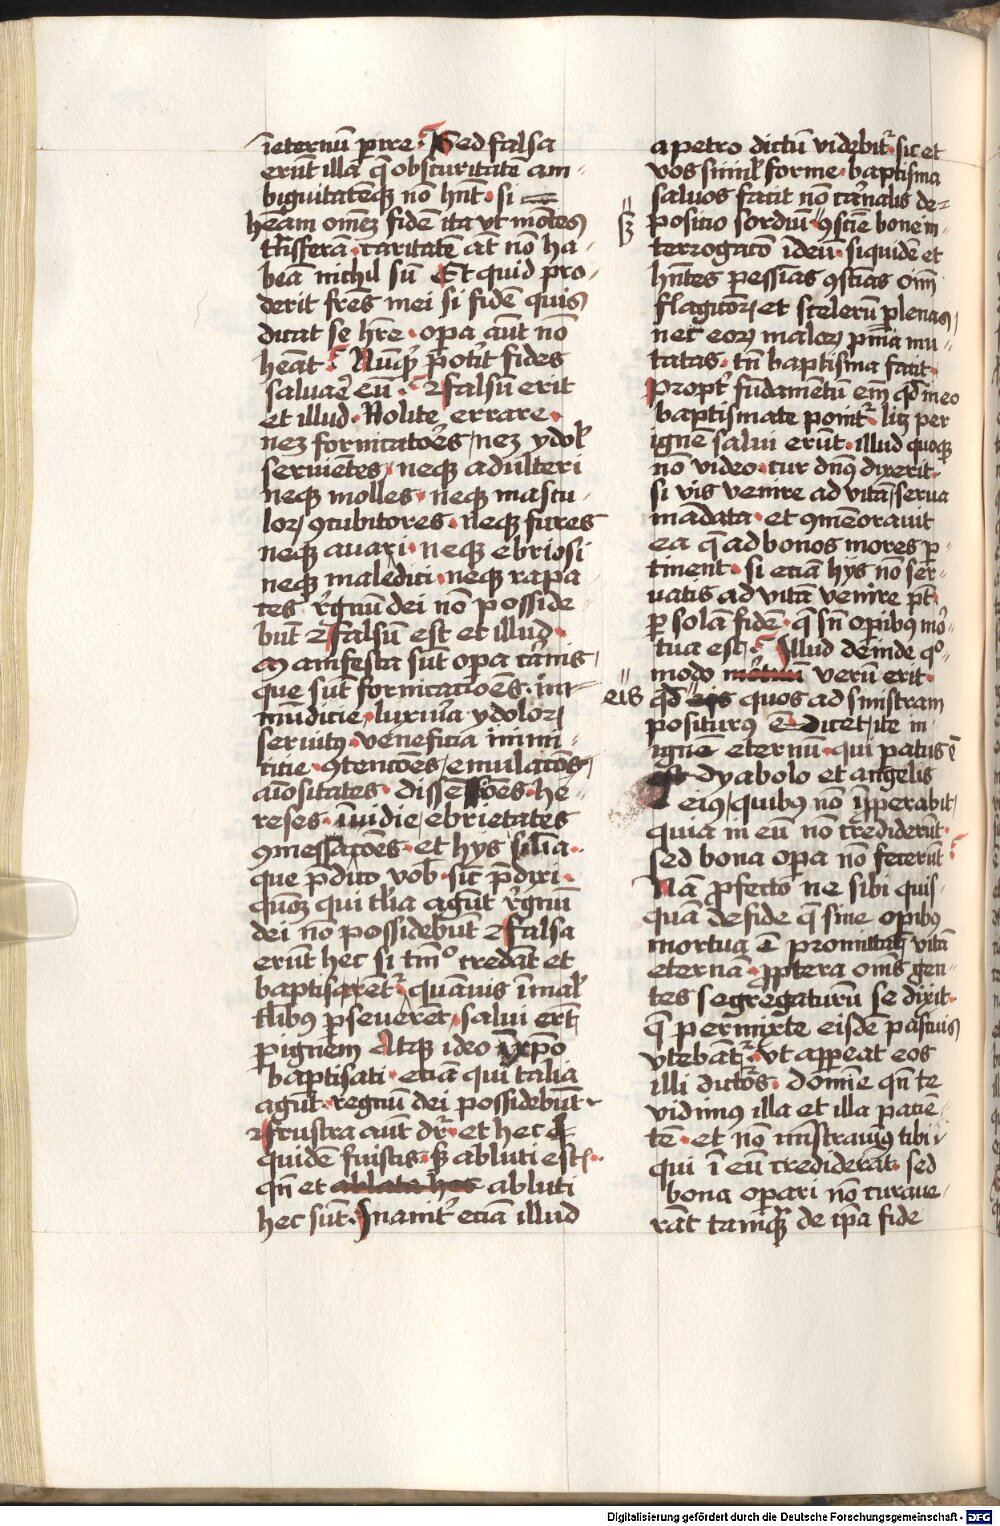 īeternū ꝑire· Sed falsa
erūt illa q̄ obscuritate am-
biguitatemqꝫ nō hn̄t· si
hēam omēꝫ fidē ita vt mōtes
trāsferā· caritatē at nō ha-
beā nichil sū Et quid pro-
derit fres̄ mei si fidē quis
dicat se hr̄e· opa aūt nō
heāt· Nūqͥd p̄oti̓t fides
saluare eū· ⁊ falsū erit
et illud· Nolite errare·
neqꝫ fornicatōes neqꝫ ydol̓
seruiētes neqꝫ adulteri
neqꝫ molles· neqꝫ mascu-
loꝝ ꝯcubitores· neqꝫ fures
neqꝫ auari· neqꝫ ebriosi
neqꝫ malediti· neqꝫ rapa
ces r̓gnū dei nō posside-
būt ⁊ falsū est et illud·
Manifesta sūt opera carnis
que sūt fornicacioēs· im-
mūdicie luxuria ydoloꝝ
seruitꝰ· veneficia inimi-
citie ꝯtencōes emulacōes
aīositates· dissēsioēs· he-
reses īuidie ebrietates
ꝯmessacōes· et hys sil̄ia·
que p̄dico vob̄ sic p̄dixi·
qm̄ qui tl̄ia agūt r̓gnū
dei nō possidebūt ⁊ falsa
erūt hec si tm̄ͦ credāt et
baptisarēt̓ quāuis ī mal̓
tl̄ibꝰ ꝑseuerēt· salui erūt
ꝑ ignem Atqꝫ ideo ī xp̄o
baptisati· eciā qui talia
agūt· regnū dei possidebūt
⁊ frustra aūt dr̄· et hec
quidē fuistis· sꝫ abluti est̓·
qn̄ et ablata hec abluti
hec sūt· Inanit̓ eciā illud
a petro dictū videbit̓· sic et
vos simil̓ forme· baptisma
saluos facit nō carnalis de-
sꝫ positio sordiū ꝯsciē bone in-
terrogacō ī deū· siquidē et
hn̄tes pessīas ꝯsciāas oīm
flagicioꝝ et scelerū plenas
nec eoꝝ maloꝝ pnīa mu-
tatas· tn̄ baptisma facit·
propt̓ fūdamētū eīm qd̓ in eo
baptismate ponit̓ licꝫ per
ignē salui erūt· illud quoqꝫ
nō video· cur dn̄s dixerit·
si vis venire ad vitā serua
mādata· et ꝯmēorauit
ea q̄ ad bonos mores ꝑ-
tinent· si eciā hys nō ser-
uatis ad vitā venire pt̄·
ꝑ solā fidē· q̄ sn̄ opibꝰ mor-
tua est· Illud deinde qͦ-
modo verū erit·
eis qd̓ eos quos ad sinistram
positurꝰ ē Dicet· ite in
ignē eternū· qui paratus ē
est dyabolo et angelis
eiꝰ quibꝰ nō īproperabit
quia in eū nō crediderūt·
sed bona opa nō fecerūt·
Nā profecto ne sibi quis-
quā de fide q̄ sine opibꝰ
mortua ē promittat vitā
eternā· proptera om̄s gen-
tes segregaturū se dixit·
q̄ permixte eisdē pascuis
vtebāt̓· vt appeat eos
illi dictōs· domie qn̄ te
vidimꝰ illa et illa pacie-
tē· et nō mīstrauimꝰ tibi
qui ī eū crediderāt· sed
bona opari nō curaue-
rāt tamqꝫ de ip̄a fide
Digitalisierung gefördert durch die Deutsche Forschungsgemeinschaft - DFG